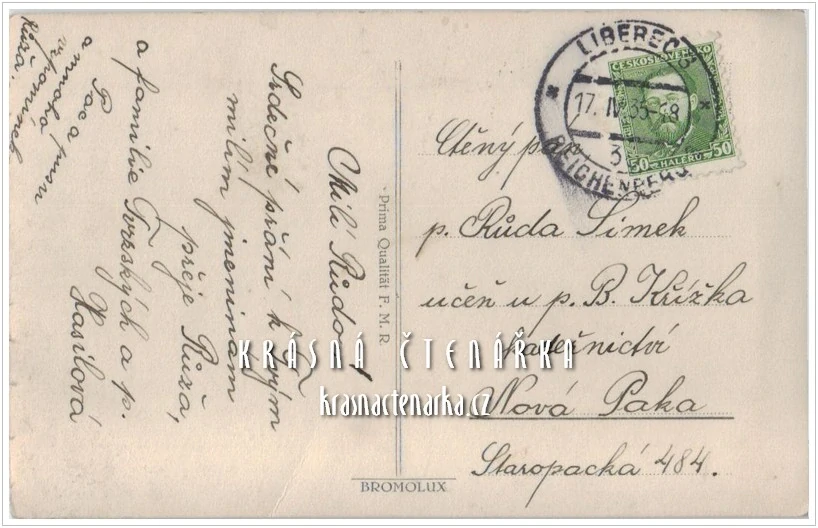 Milí Růdo!
Srdečné přání k Tvým
milím jmeninám
přeje Růža,
a familie Tvrzských a p.
Hasilová
a máca
Růža.
Prima Qualität F. M. R.
BROMOLUX
LIBEREC 3
17. IV. 35 - 18
3
REICHENBERG
ČESKOSLOVENSKO
50 HALÉŘŮ 50
Ctěný pán
p. Růda Šimek
učeň u p. B. Křížka
kadeřnictví
Nová Paka
Staropacká 484.
KRÁSNÁ ČTENÁŘKA
krasnactenarka.cz